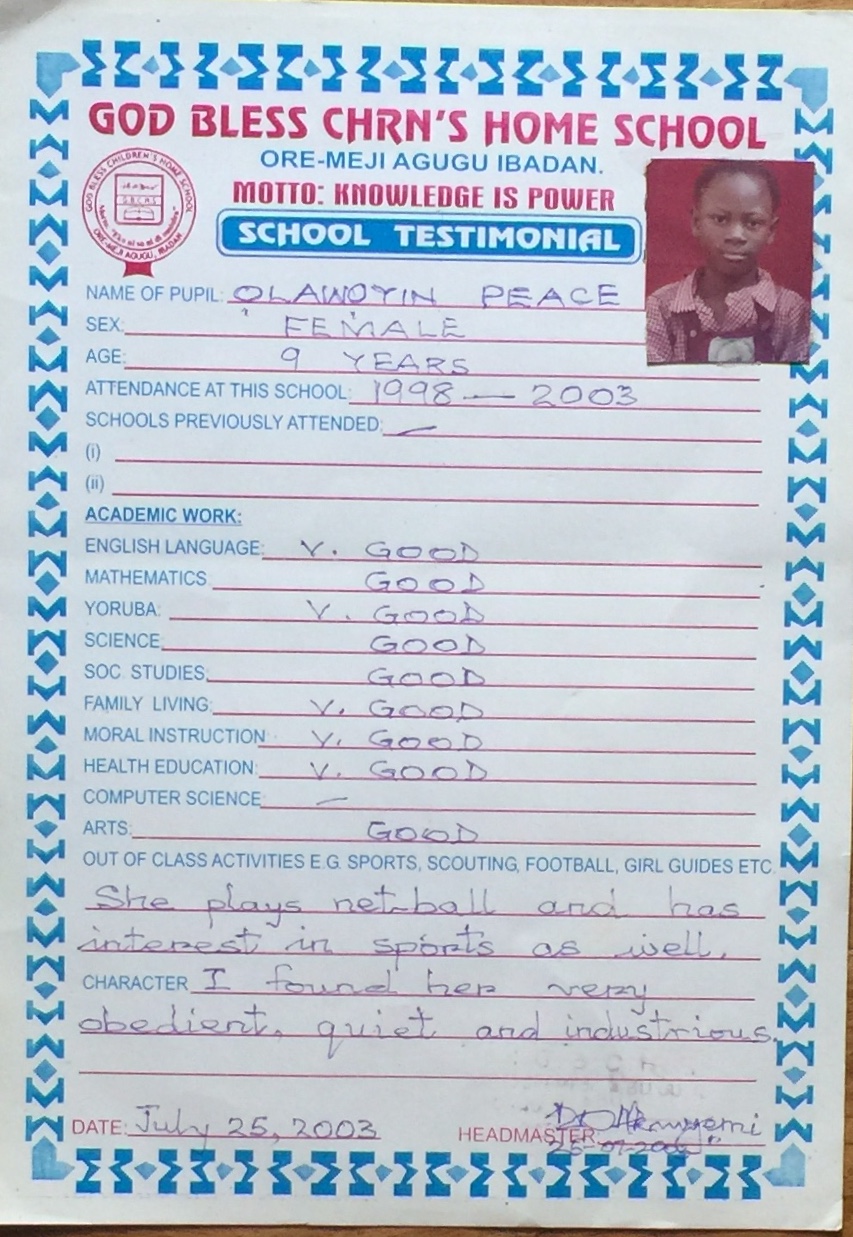 GOD BLESS CHRN'S HOME SCHOOL
ORE-MEJI AGUGU IBADAN.
MOTTO: KNOWLEDGE IS POWER
SCHOOL TESTIMONIAL
GOD BLESS CHILDREN'S HOME SCHOOL
G.B.C.H.S
ORE-MEJI AGUGU, IBADAN
NAME OF PUPIL: OLAWOYIN PEACE
SEX: FEMALE
AGE: 9 YEARS
ATTENDANCE AT THIS SCHOOL: 1998 — 2003
SCHOOLS PREVIOUSLY ATTENDED: —
(i)
(ii)
ACADEMIC WORK:
ENGLISH LANGUAGE: V. GOOD
MATHEMATICS GOOD
YORUBA: V. GOOD
SCIENCE: GOOD
SOC. STUDIES: GOOD
FAMILY LIVING: V. GOOD
MORAL INSTRUCTION V. GOOD
HEALTH EDUCATION: V. GOOD
COMPUTER SCIENCE —
ARTS: GOOD
OUT OF CLASS ACTIVITIES E.G. SPORTS, SCOUTING, FOOTBALL, GIRL GUIDES ETC.
She plays net-ball and has
interest in sports as well.
CHARACTER I found her very
obedient, quiet and industrious.
DATE: July 25, 2003 HEADMASTER: